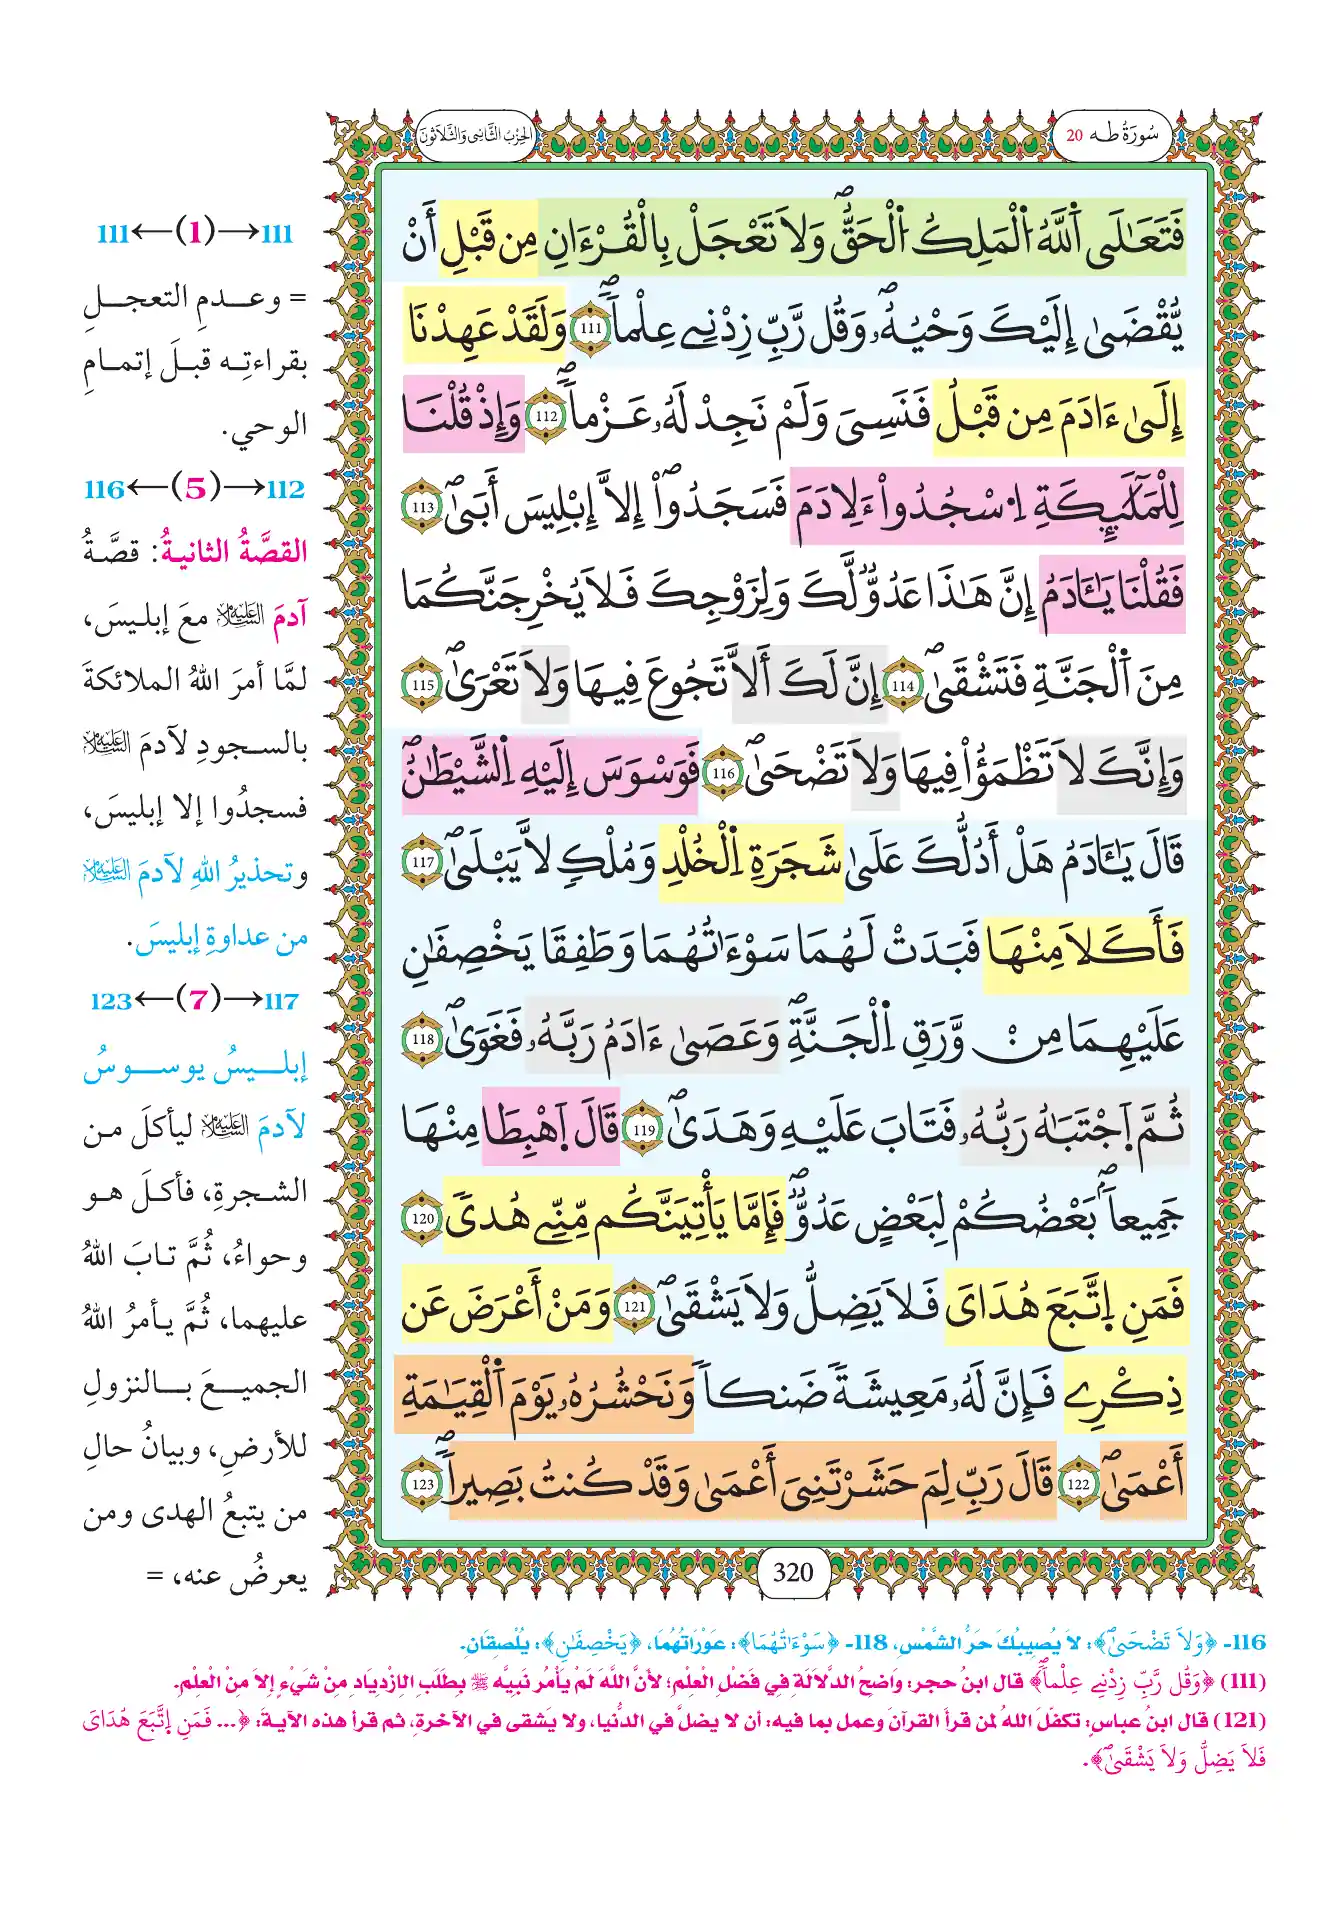 سُورَةُ طـه 20
الحِزْبُ الثَّانِي وَالثَّلَاثُونَ
فَتَعَٰلَى اَ۬للَّهُ اُ۬لْمَلِكُ اُ۬لْحَقُّۖ وَلَا تَعْجَلْ بِالْقُرْءَانِ مِن قَبْلِ أَنْ
يُّقْضَىٰ إِلَيْكَ وَحْيُهُۥۖ وَقُل رَّبِّ زِدْنِے عِلْماٗۖ 111 وَلَقَدْ عَهِدْنَا
إِلَىٰ ءَادَمَ مِن قَبْلُ فَنَسِيَ وَلَمْ نَجِدْ لَهُۥ عَزْماٗۖ 112 وَإِذْ قُلْنَا
لِلْمَلَٰٓئِكَةِ اِ۟سْجُدُواْ ءَلِادَمَ فَسَجَدُوٓاْ إِلَّا إِبْلِيسَ أَبَىٰۖ 113
فَقُلْنَا يَٰٓـَٔادَمُ إِنَّ هَٰذَا عَدُوّٞ لَّكَ وَلِزَوْجِكَ فَلَا يُخْرِجَنَّكُمَا
مِنَ اَ۬لْجَنَّةِ فَتَشْقَىٰۖ 114 إِنَّ لَكَ أَلَّا تَجُوعَ فِيهَا وَلَا تَعْرَىٰۖ 115
وَإِنَّكَ لَا تَظْمَؤُاْ فِيهَا وَلَا تَضْحَىٰۖ 116 فَوَسْوَسَ إِلَيْهِ اِ۬لشَّيْطَٰنُۖ
قَالَ يَٰٓـَٔادَمُ هَلْ أَدُلُّكَ عَلَىٰ شَجَرَةِ اِ۬لْخُلْدِ وَمُلْكٖ لَّا يَبْلَىٰۖ 117
فَأَكَلَا مِنْهَا فَبَدَتْ لَهُمَا سَوْءَٰتُهُمَا وَطَفِقَا يَخْصِفَٰنِ
عَلَيْهِمَا مِنْ وَّرَقِ اِ۬لْجَنَّةِۖ وَعَصَىٰ ءَادَمُ رَبَّهُۥ فَغَوَىٰۖ 118
ثُمَّ اَ۪جْتَبَٰهُ رَبُّهُۥ فَتَابَ عَلَيْهِ وَهَدَىٰۖ 119 قَالَ اَ۪هْبِطَا مِنْهَا
جَمِيعاَۢۖ بَعْضُكُمْ لِبَعْضٍ عَدُوّٞۖ فَإِمَّا يَأْتِيَنَّكُم مِّنِّے هُدٗى 120
فَمَنِ اِ۪تَّبَعَ هُدَايَ فَلَا يَضِلُّ وَلَا يَشْقَىٰۖ 121 وَمَنْ أَعْرَضَ عَن
ذِكْرِے فَإِنَّ لَهُۥ مَعِيشَةٗ ضَنكاٗ وَنَحْشُرُهُۥ يَوْمَ اَ۬لْقِيَٰمَةِ
أَعْمَىٰۖ 122 قَالَ رَبِّ لِمَ حَشَرْتَنِيَ أَعْمَىٰ وَقَدْ كُنتُ بَصِيراٗۖ 123
320
111←(1)→111
= وعـدمِ التعجـلِ
بقراءتِـه قبـلَ إتمـامِ
الوحي.
116←(5)→112
القصَّةُ الثانيةُ: قصَّةُ
آدمَ عَلَيْهِ السَّلَامُ معَ إبليسَ،
لمَّا أمرَ اللهُ الملائكةَ
بالسـجودِ لآدمَ عَلَيْهِ السَّلَامُ
فسجدُوا إلا إبليسَ،
وتحذيرُ اللهِ لآدمَ عَلَيْهِ السَّلَامُ
من عداوةِ إبليسَ.
123←(7)→117
إبلـيسُ يوسـوسُ
لآدمَ عَلَيْهِ السَّلَامُ ليأكلَ مـن
الشـجرةِ، فأكـلَ هـو
وحواءُ، ثُمَّ تـابَ اللهُ
عليهما، ثُمَّ يـأمرُ اللهُ
الجميـعَ بـالنزولِ
للأرضِ، وبيانُ حالِ
من يتبعُ الهدى ومن
يعرضُ عنه، =
116- ﴿وَلَا تَضْحَىٰۖ﴾: لَا يُصِيبُكَ حَرُّ الشَّمْسِ، 118- ﴿سَوْءَٰتُهُمَا﴾: عَوْرَاتُهُمَا، ﴿يَخْصِفَٰنِ﴾: يُلْصِقَانِ.
(111) ﴿وَقُل رَّبِّ زِدْنِے عِلْماٗۖ﴾ قال ابنُ حجر: وَاضِحُ الدَّلَالَةِ فِي فَضْلِ الْعِلْمِ؛ لأَنَّ اللَّهَ لَمْ يَأْمُر نَبِيَّه ﷺ بِطَلَبِ الِازْدِيَادِ مِنْ شَيْءٍ إِلَّا مِنْ الْعِلْمِ.
(121) قال ابنُ عباسٍ: تكفَّلَ اللهُ لمن قرأَ القرآنَ وعمل بما فيه: أن لا يضلَّ في الدُّنيا، ولا يَشقى في الآخرةِ، ثم قرأ هذه الآيةَ: ﴿... فَمَنِ اِ۪تَّبَعَ هُدَايَ
فَلَا يَضِلُّ وَلَا يَشْقَىٰۖ﴾.